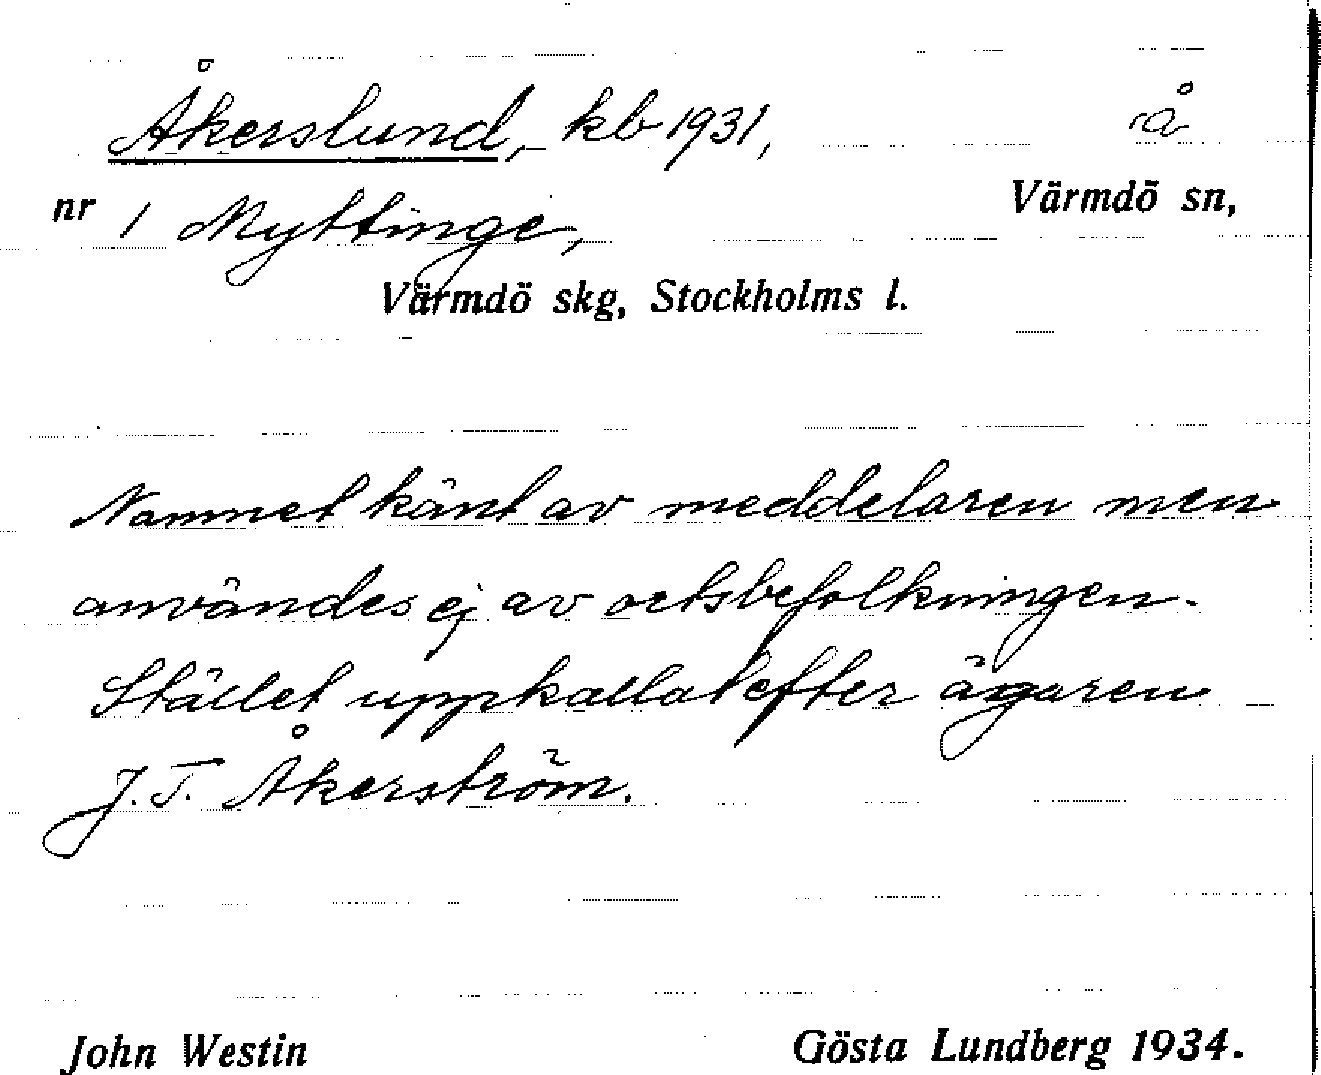 Åkerslund, kb 1931, å
nr 1 Myttinge, Värmdö sn,
Värmdö skg, Stockholms l.
Namnet känt av meddelaren men
användes ej av ortsbefolkningen.
Stället uppkallat efter ägaren
J. T. Åkerström.
John Westin Gösta Lundberg 1934.